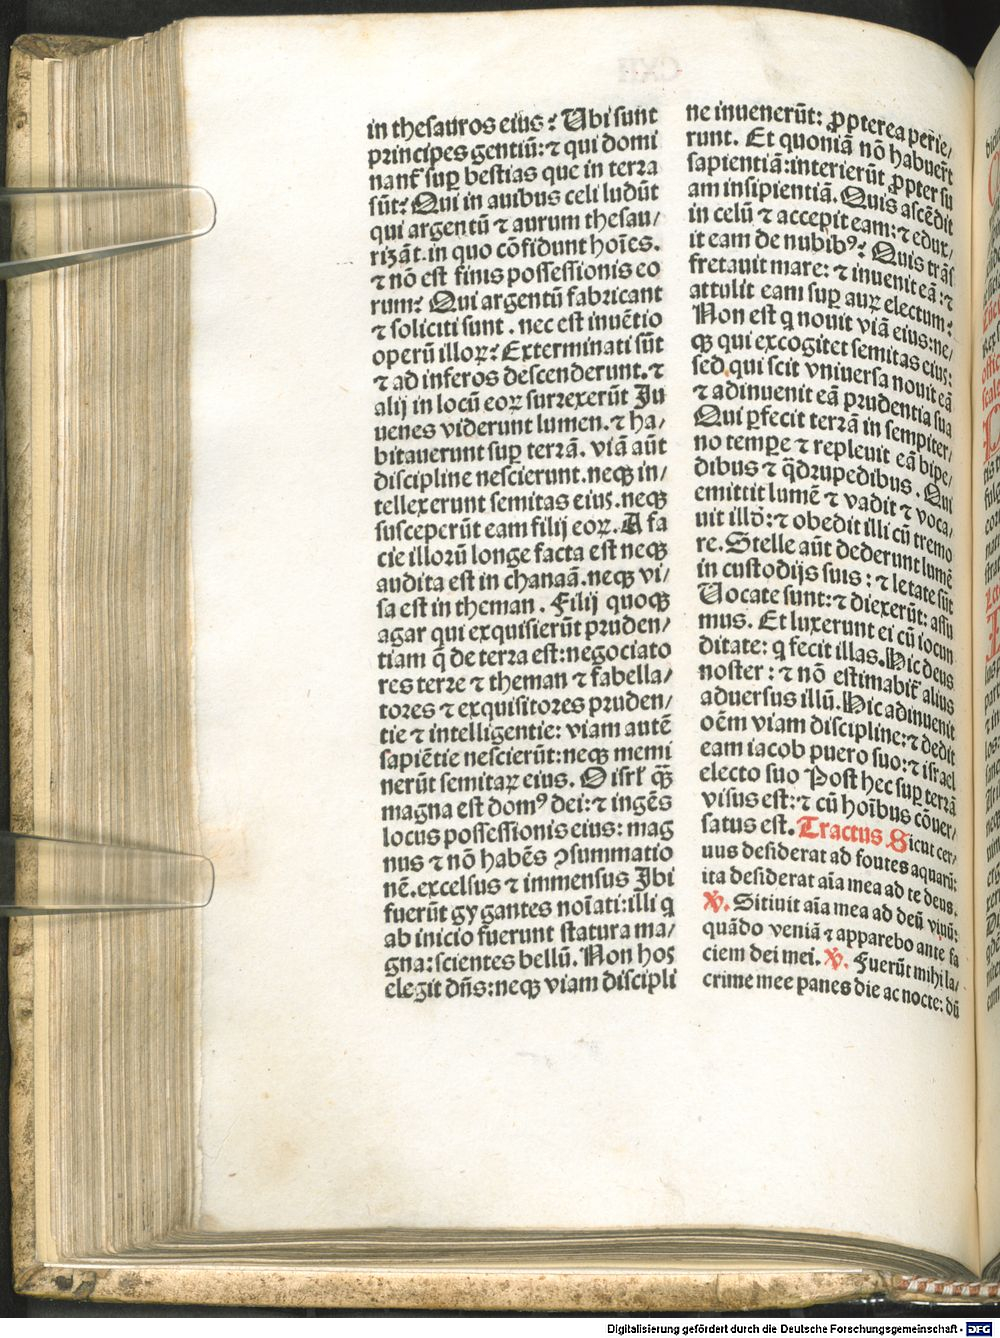 in thesauros eius? Ubi sunt
principes gentiū: ⁊ qui domi
nant᷑ sup̱ bestias que in terra
sūt? Qui in auibus celi ludūt
qui argentū ⁊ aurum thesau/
rizāt. in quo cōfidunt hoīes.
⁊ nō est finis possessionis eo
rum? Qui argentū fabricant
⁊ soliciti sunt. nec est inuētio
operū illoꝝ? Exterminati sūt
⁊ ad inferos descenderunt. ⁊
alij in locū eoꝝ surrexerūt Ju
uenes viderunt lumen. ⁊ ha/
bitauerunt sup̱ terrā. viā aūt
discipline nescierunt. neqꝫ in/
tellexerunt semitas eius. neqꝫ
susceperūt eam filij eoꝝ. A fa
cie illorū longe facta est neqꝫ
audita est in chanaā. neqꝫ vi/
sa est in theman. Filij quoqꝫ
agar qui exquisierūt pruden/
tiam q̄ de terra est: negociato
res terre ⁊ theman ⁊ fabella/
tores ⁊ exquisitores pruden/
tie ⁊ intelligentie: viam autē
sapiētie nescierūt: neqꝫ memi
nerūt semitaꝝ eius. O isrl̓ q̄ꝫ
magna est domꝰ dei: ⁊ ingēs
locus possessionis eius: mag
nus ⁊ nō habēs ꝯsummatio
nē. excelsus ⁊ immensus Ibi
fuerūt gygantes noīati: illi q
ab inicio fuerunt statura ma/
gna: scientes bellū. Non hos
elegit dn̄s: neqꝫ viam discipli
ne inuenerūt: ꝓpterea perie/
runt. Et quoniā nō habuerūt
sapientiā: interierūt ꝓpter su
am insipientiā. Quis ascēdit
in celū ⁊ accepit eam: ⁊ edux/
it eam de nubibꝰ? Quis trās
fretauit mare: ⁊ inuenit eā: ⁊
attulit eam sup̱ auꝝ electum?
Non est q nouit viā eius: ne/
qꝫ qui excogitet semitas eius:
sed qui scit vniuersa nouit eā
⁊ adinuenit eā prudentia sua
Qui ꝑfecit terrā in sempiter/
no tempe ⁊ repleuit eā bipe/
dibus ⁊ q̄drupedibus. Qui
emittit lumē ⁊ vadit ⁊ voca/
uit illd̓: ⁊ obedit illi cū tremo
re. Stelle aūt dederunt lumē
in custodijs suis: ⁊ letate sūt
Uocate sunt: ⁊ dixerūt: assu
mus. Et luxerunt ei cū iocun
ditate: q fecit illas. Hic deus
noster: ⁊ nō estimabit᷑ alius
aduersus illū. Hic adinuenit
oēm viam discipline: ⁊ dedit
eam iacob puero suo: ⁊ israel
electo suo Post hec sup̱ terrā
visus est: ⁊ cū hoībus cōuer/
satus est. Tractus Sicut cer/
uus desiderat ad fontes aquarū:
ita desiderat aīa mea ad te deus.
℣. Sitiuit aīa mea ad deū viuū:
quādo veniā ⁊ apparebo ante fa
ciem dei mei. ℣. Fuerūt mihi la/
crime mee panes die ac nocte: dū
Digitalisierung gefördert durch die Deutsche Forschungsgemeinschaft - DFG